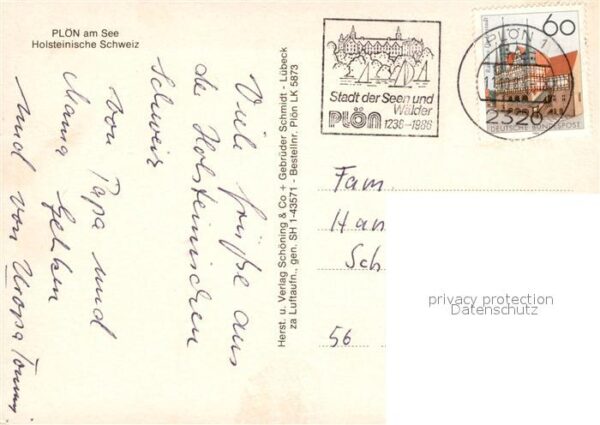 PLÖN am See
Holsteinische Schweiz
Viele Grüße aus
der Holsteinischen
Schweiz
von Papa und
Mama
und von Uropa Tommy.
Herst. u. Verlag Schöning & Co + Gebrüder Schmidt - Lübeck
za Luftaufn., gen. SH 1-43571 - Bestellnr. Plön LK 5873
Stadt der Seen und
Wälder
PLÖN 1236-1986
PLÖN 1
2320
60
DEUTSCHE BUNDESPOST
Fam.
Han
Sch
56
privacy protection
Datenschutz